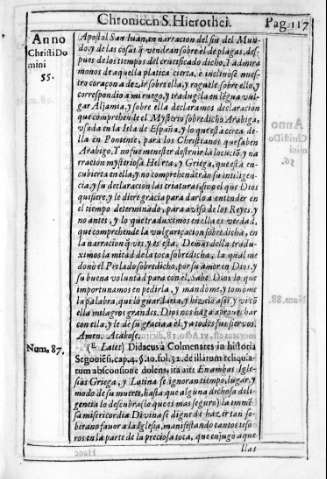 Chronicon S. Hierothei.
Pag. 117
Anno
Christi Do
mini
55.
Apostol San Iuan, en narracion del fin del Mun-
do, y de las cosas q̃ vendran sobre èl de plagas, des-
pues de los tiempos del crucificado dicho, I admira
monos de aquella platica cierta, è inclinose nues-
tro coraçon a dezir sobre ella, y rogurle sobre ello, y
correspondiò a mi ruego, y traduxela en lẽgua vul-
gar Aljamia, y sobre ella declaramos declaracion
que comprehende el Mysterio sobredicho, Arabiga,
vsada en la Isla de España, y lo que està cerca de-
lla en Poniente, para los Christianos que saben
Arabigo. T no fue menister destruir la locuciõ, y na
rracion mysteriosa Hebrea, y Griega, que està en-
cubierta en ella, y no comprehenderàn su inteligen-
cia, y su declaracion las criaturas, sino el que Dios
quisiere, y le diere gracia para darlo a entender en
el tiempo determinado, para auiso de los Reyes, y
no antes, y lo que traduximos en ella es verdad,
que comprehende la vulgarizacion sobredicha, en
la narracion q̃ ves, y es esta. Demas desto tradu-
ximos la mitad de la toca sobredicha, la qual me
donò el Prelado sobredicho, por su amor en Dios y
su buena voluntad para con èl. Sabe Dios lo que
importunamos en pedirla, y mandòme, y tomòme
la palabra, que lo guardaria, y hizelo assi, y vi en
ella milagros grandes. Dios nos haga aprouechar
con ella, y le de su gracia a èl, y a todos sus sieruos.
Amen. Acabose.
Num. 87.
[E Latet] Didacus à Colmenares in historia
Segouiẽsi, cap. 4. §. 10. fol. 32. de illarum reliquia-
tum absconsione dolens, ita ait: Enambas Igle-
sias Griega, y Latina se ignoran tiempo, lugar, y
modo de su muerte, hasta que alguna dichosa dili-
gencia lo descubra (si es mas seguro) la inmẽ-
sa misericordia Diuina se digne de hazer tan so-
berano fauor a la Iglesia, manifestando tantos teso-
ros en la parte de la preciosa toca, que cupo a aque
llas